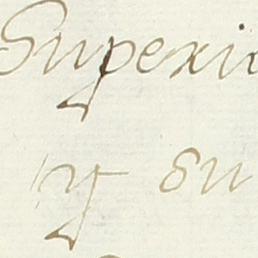 Superio
y su